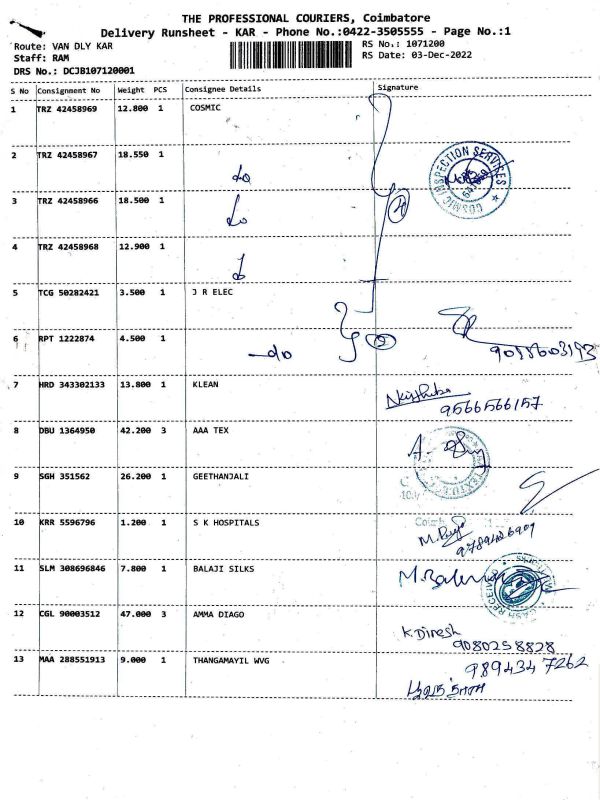 THE PROFESSIONAL COURIERS, Coimbatore
Delivery Runsheet - KAR - Phone No.:0422-3505555 - Page No.:1
Route: VAN DLY KAR
RS No.: 1071200
Staff: RAM
RS Date: 03-Dec-2022
DRS No.: DCJB107120001
S No Consignment No Weight PCS Consignee Details Signature
1 TRZ 42458969 12.800 1 COSMIC
2 TRZ 42458967 18.550 1 do
COSMIC INSPECTION SERVICES
3 TRZ 42458966 18.500 1 do 4
4 TRZ 42458968 12.900 1
5 TCG 50282421 3.500 1 J R ELEC
6 RPT 1222874 4.500 1 do 2
7 HRD 343302133 13.800 1 KLEAN
9566566157
8 DBU 1364950 42.200 3 AAA TEX
9 SGH 351562 26.200 1 GEETHANJALI
10 KRR 5596796 1.200 1 S K HOSPITALS
11 SLM 308696846 7.800 1 BALAJI SILKS
CASH RECEIVED
12 CGL 90003512 47.000 3 AMMA DIAGO
K.Dinesh
9080258828
13 MAA 288551913 9.000 1 THANGAMAYIL WVG
9894347262